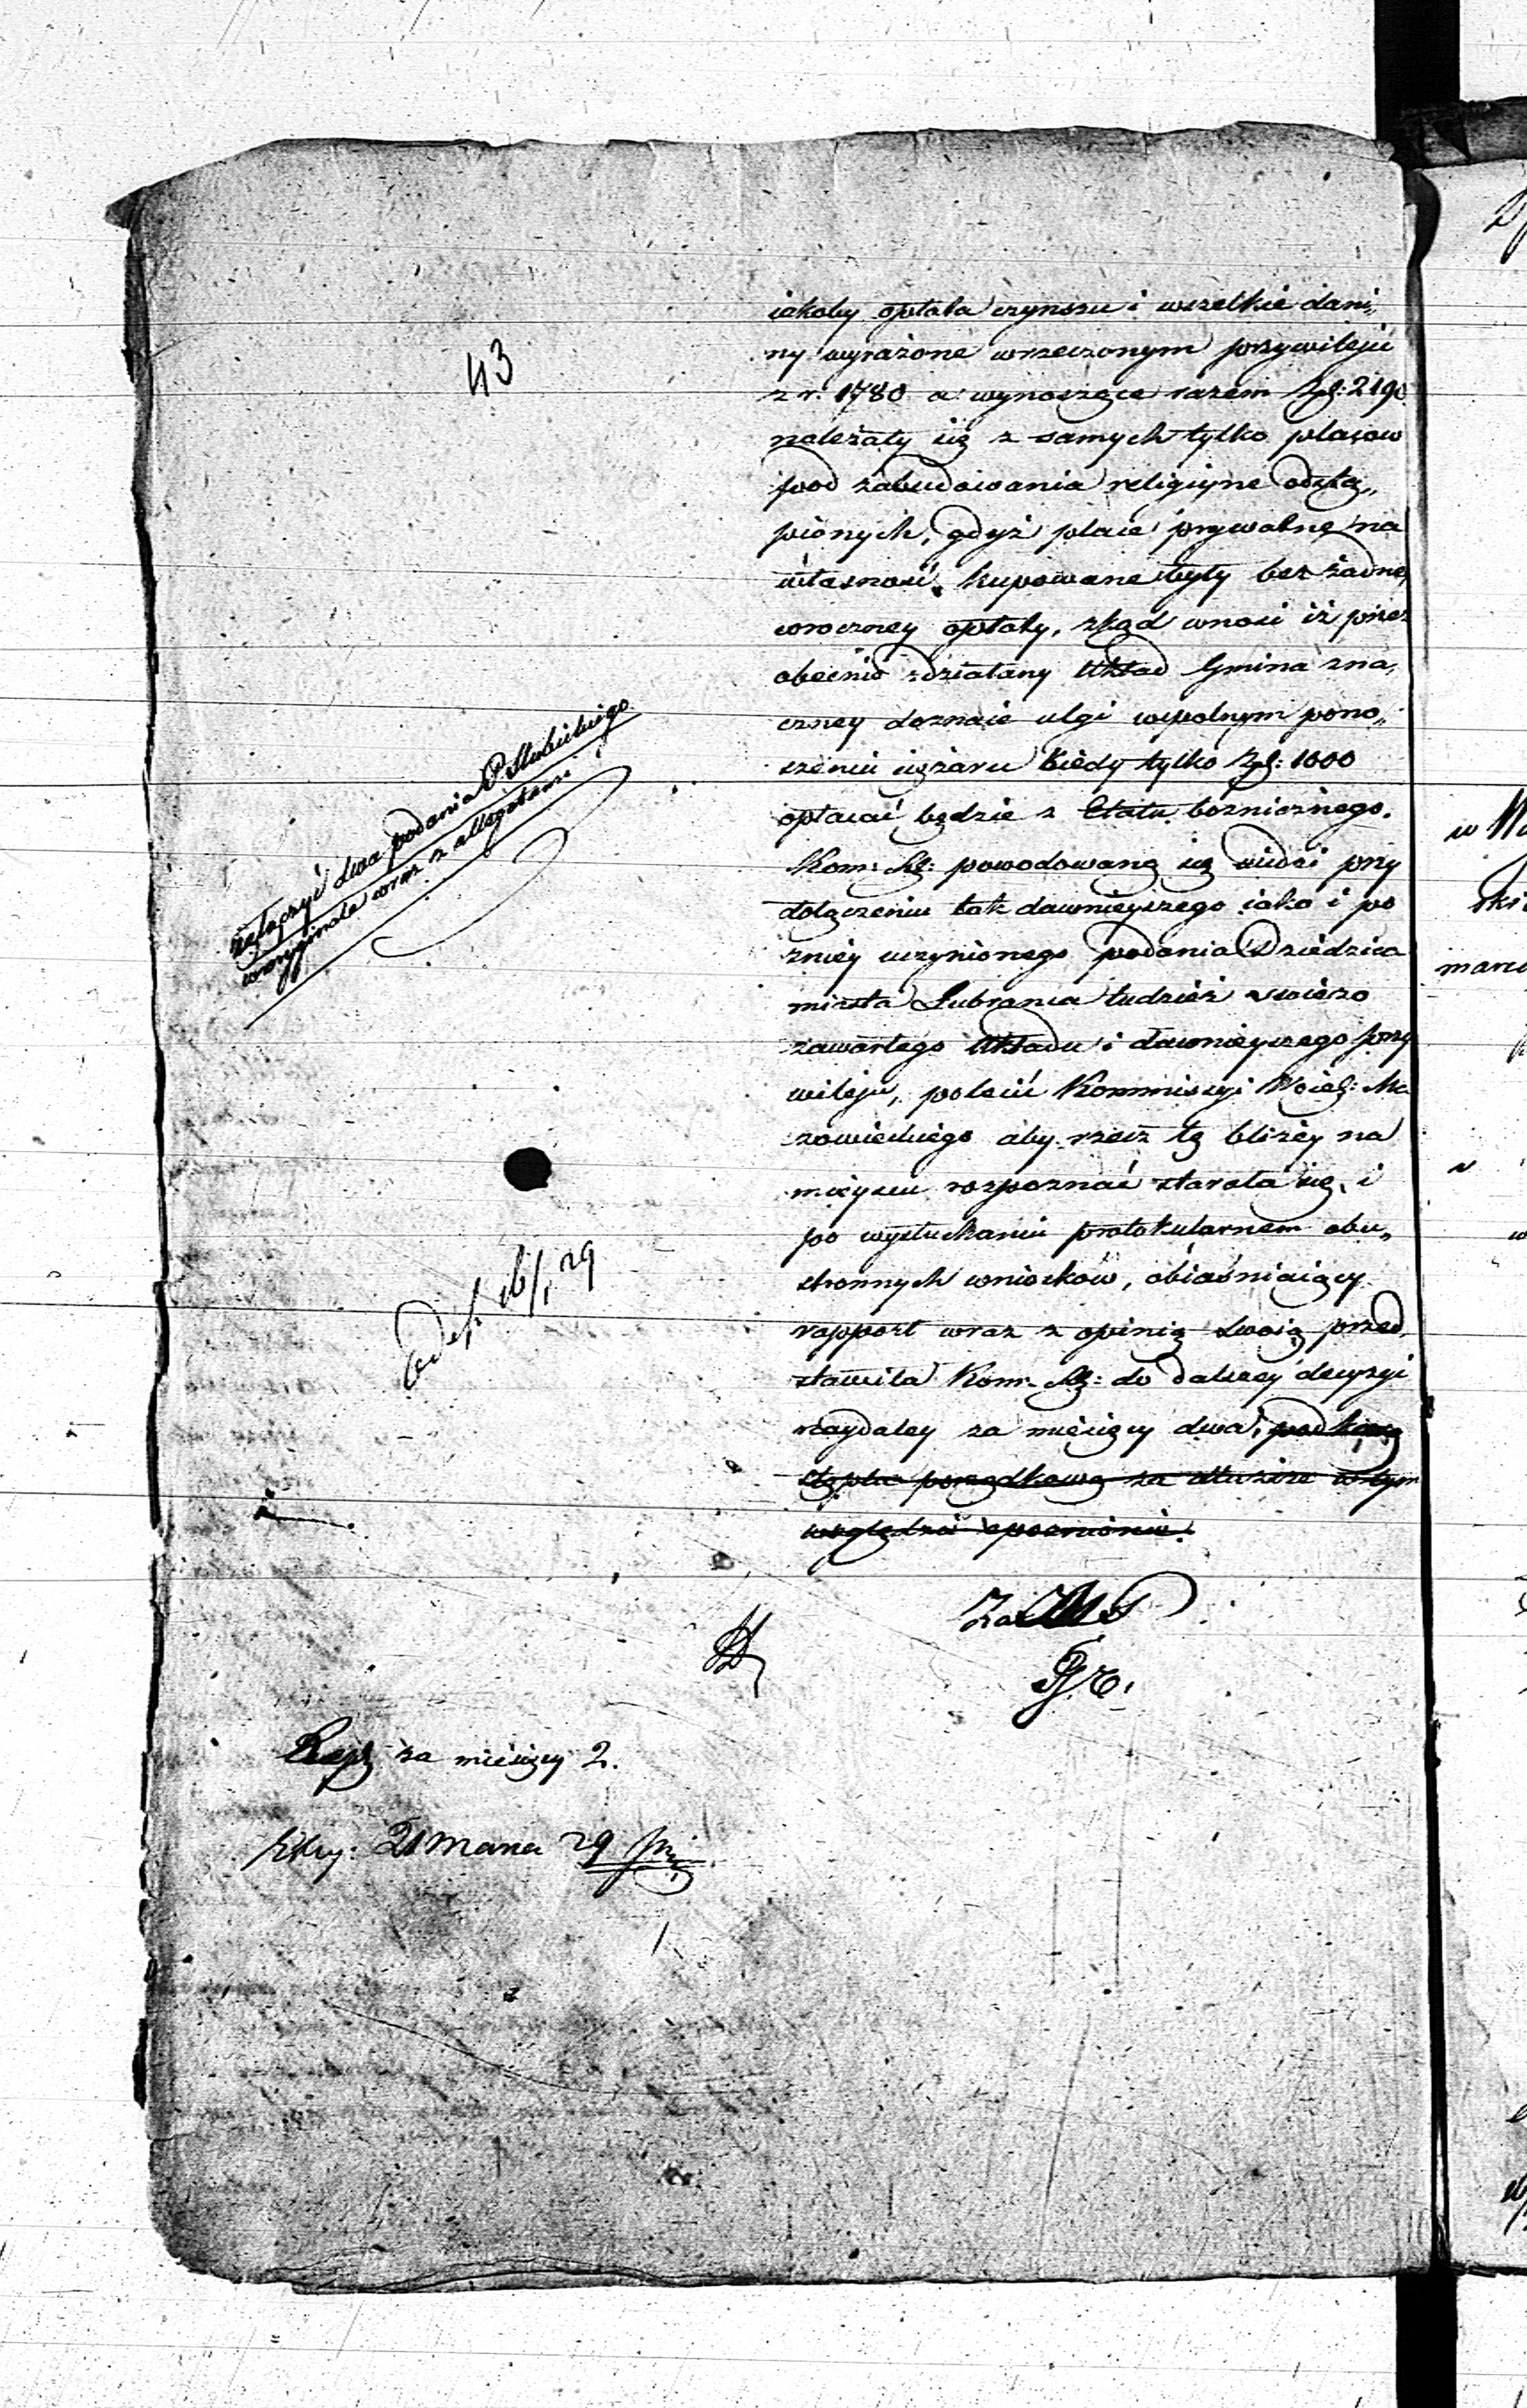 43
iakoby opłata czynszu i wszelkie dani„
ny wyrażone wrzeczonym przywileju
z r. 1780 a wynoszące razem Zł: 2190
należały się z samych tylko placow
pod zabudowania religiyne odstą„
pionych, gdyż place prywatne na
własność kupowane były bez żadney
coroczney opłaty, zkąd wnosi iż przez
obecnie zdziałany Układ Gmina zna„
czney doznaie ulgi wspolnym pono„
szeniu ciężaru kiedy tylko Zł: 1000
opłacać będzie z Etatu bożnicznego.
Kom: Rz: powodowaną się widzi przy
dołączeniu tak dawnieyszego iako i po
zniey uczynionego podania Dziedzica
miasta Lubrania tudzież swieżo
zawartego Układu i dawnieyszego przy
wileju, polecić Kommissyi Woiew: Ma
zowieckiego aby rzecz tę bliżey na
mieyscu rozpoznać starała się, i
po wysłuchaniu protokularnem obu„
stronnych wniosków, obiaśniaiący
rapport wraz z opinią swoią przed„
stawiła Kom. Rz: do dalszey decyzyi
naydaley za miesięcy dwa, pod karą
stęplu porządkową za dłuższe w tym
względzie opoznienie.
załączyć dwa podania P. Słubickiego
w oryginale wraz z allegatami
16/1 29
Za
Rep za miesięcy 2.
21 Marca 29